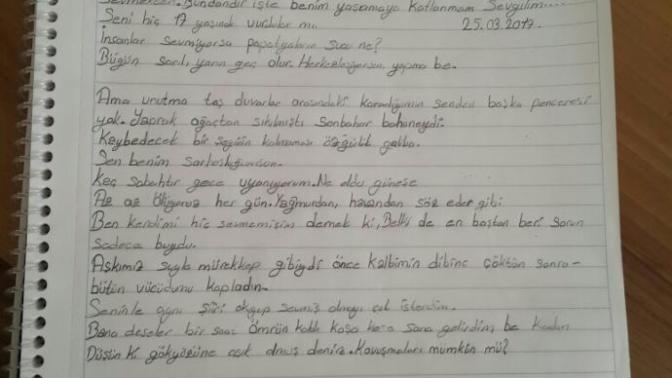 Bundandır işte benim yaşamaya katlanmam sevgilim....
Seni hiç 17 yaşında vurdular mı 25.03.2017..
İnsanlar sevmiyorsa papatyaların suçu ne?
Bugün sarıl, yarın geç olur. Herkesleşiyorsun, yapma be.
Ama unutma taş duvarlar arasındaki karanlığımın senden başka penceresi
yok. Yaprak ağaçtan sıkılmıştı sonbahar bahaneydi.
Kaybedecek bir şeyin kalmaması özgürlük galiba.
Sen benim sarhoşluğumsun.
Kaç sabahtır gece uyanıyorum. Ne oldu güneşe
Az az ölüyoruz her gün. Yağmurdan, havadan söz eder gibi
Ben kendimi hiç sevmemişim demek ki, Belki de en baştan beri sorun
sadece buydu.
Aşkımız suyla mürekkep gibiydi önce kalbimin dibine çöktün sonra-
bütün vücudumu kapladın.
Seninle aynı şiiri okuyup sevmiş olmayı çok isterdim.
Bana deseler bir saat ömrün kaldı koşa koşa sana gelirdim be kadın
Düşün ki gökyüzüne aşık olmuş deniz. Kavuşmaları mümkün mü?